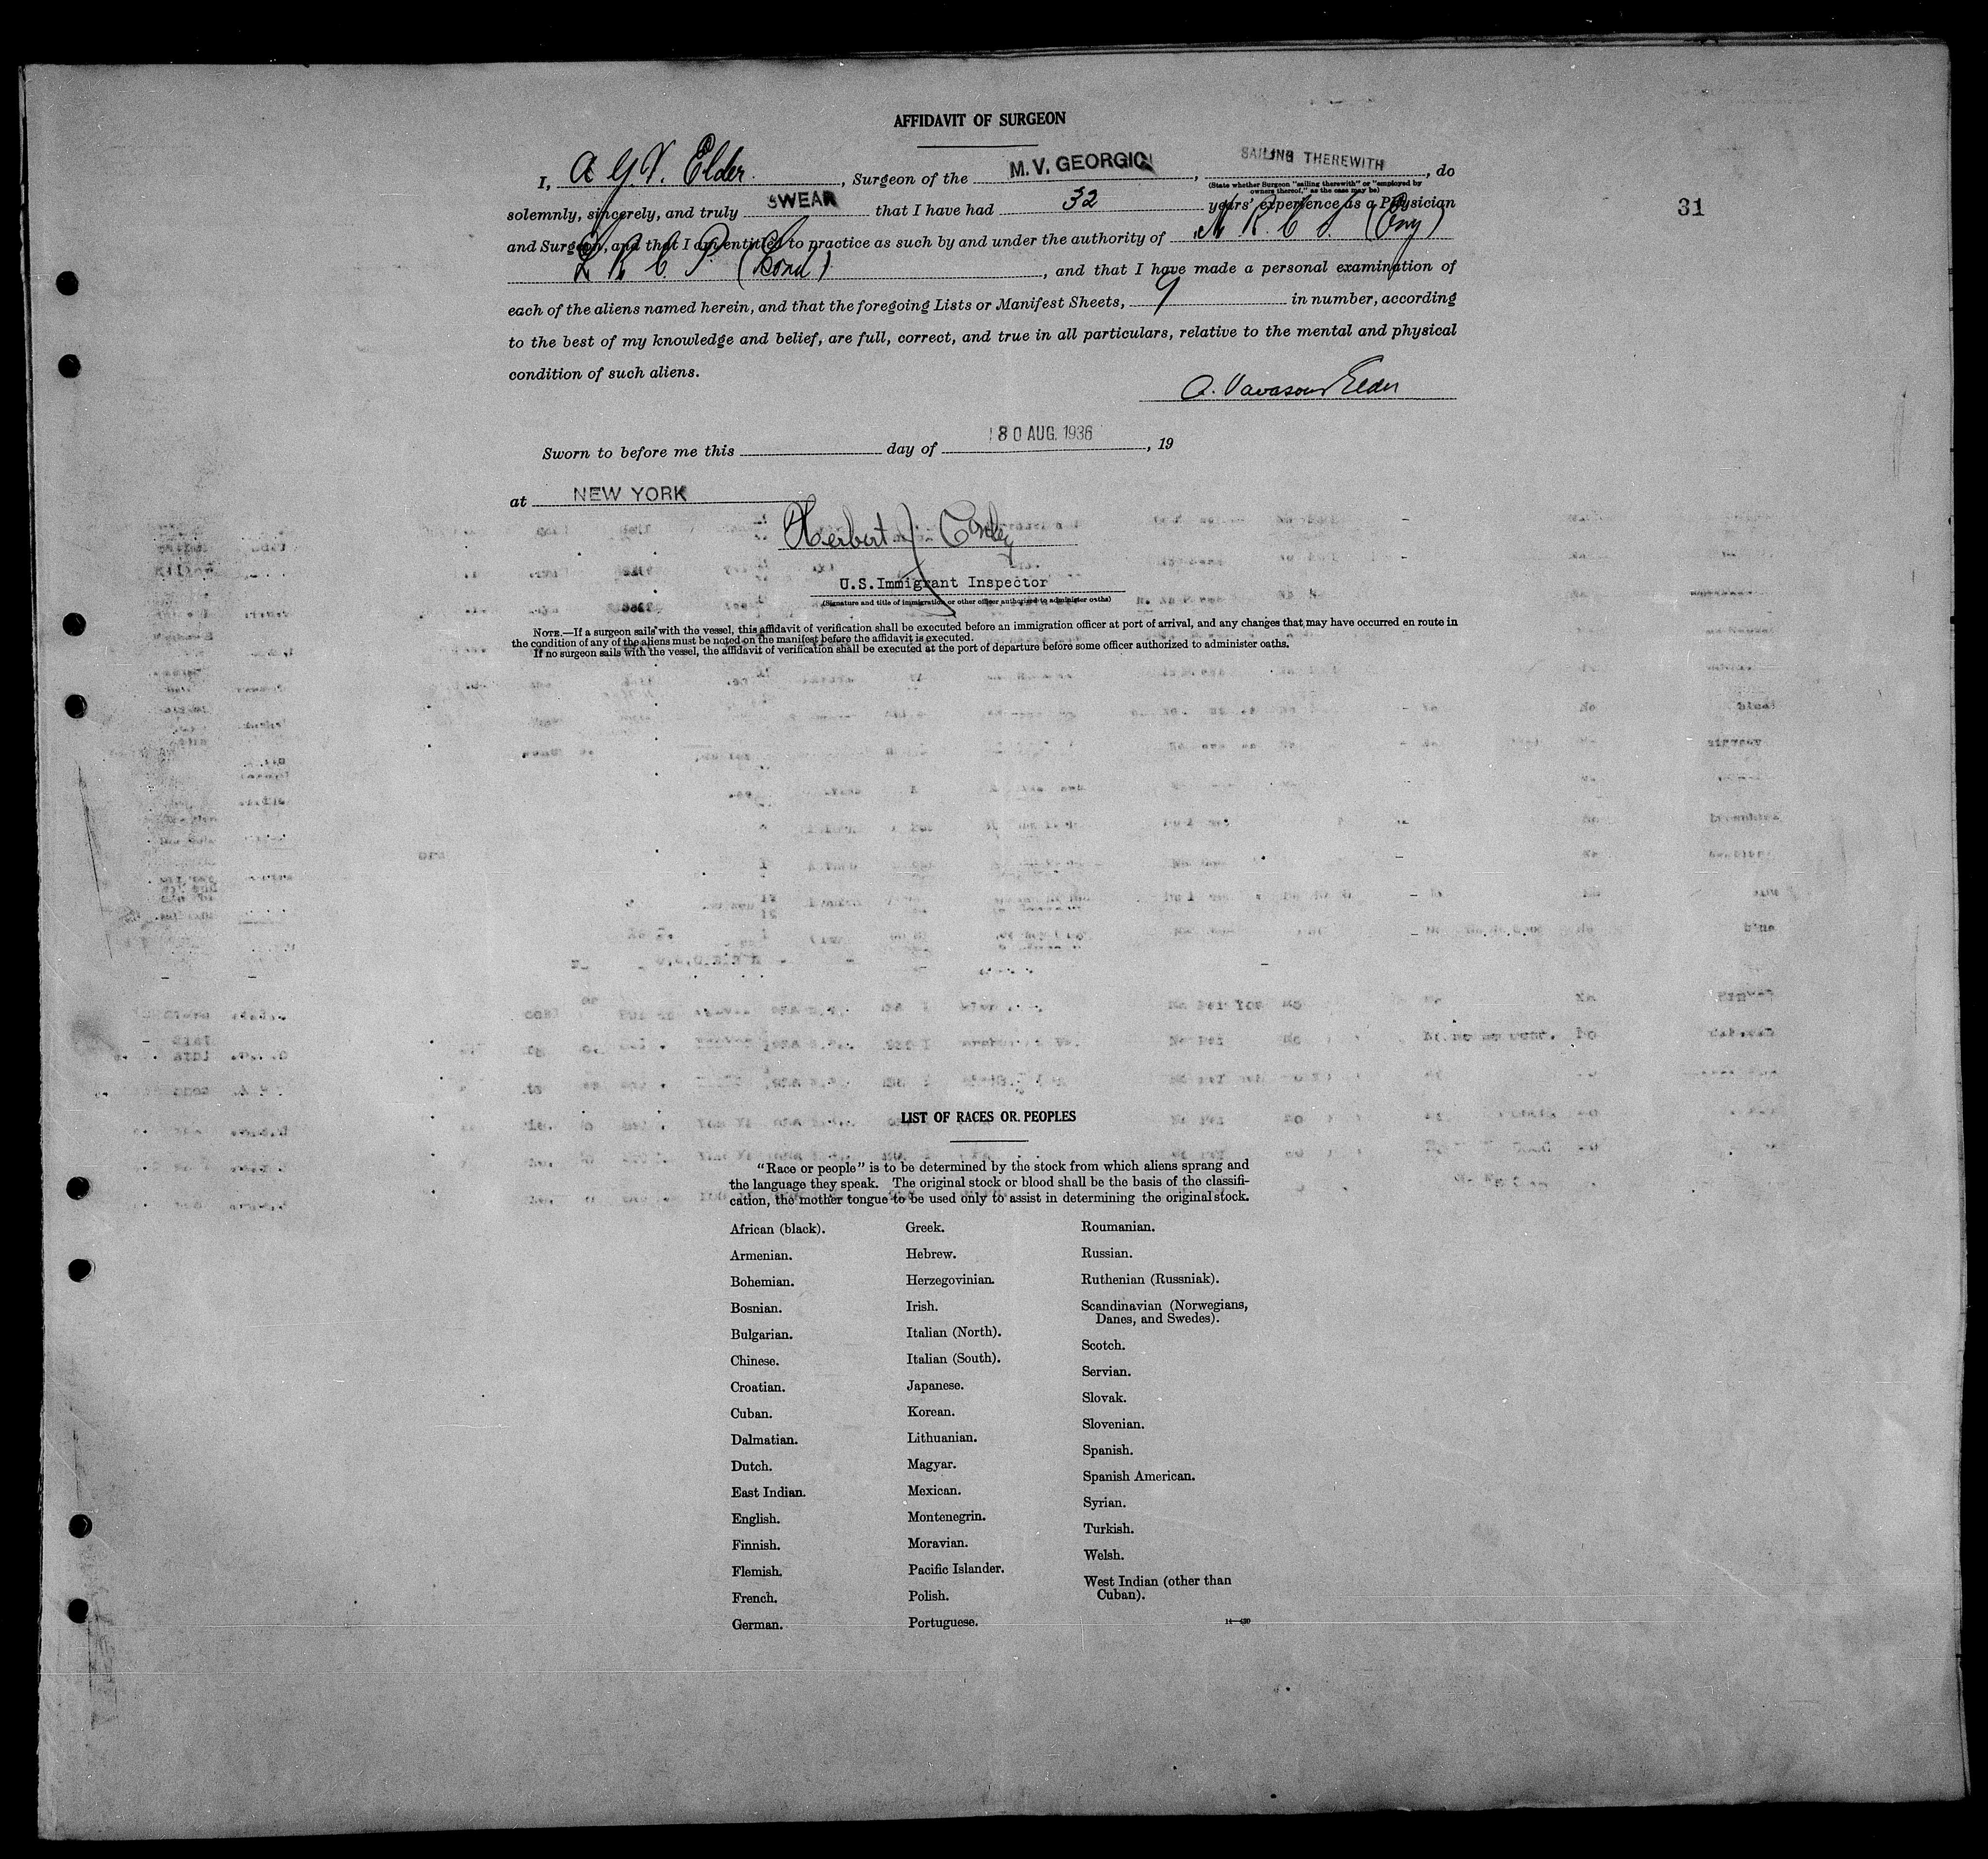 AFFIDAVIT OF SURGEON
I, A G. V. Elder, Surgeon of the M. V. GEORGIC, SAILING THEREWITH, do
(State whether Surgeon "sailing therewith" or "employed by
owners thereof," as the case may be)
31
solemnly, sincerely, and truly SWEAR that I have had 32 years' experience as a Physician
and Surgeon, and that I am entitled to practice as such by and under the authority of M. R. C. S. (Eng)
L R C. P. (Lond), and that I have made a personal examination of
each of the aliens named herein, and that the foregoing Lists or Manifest Sheets, 9 in number, according
to the best of my knowledge and belief, are full, correct, and true in all particulars, relative to the mental and physical
condition of such aliens.
A. Vavasour Elder
Sworn to before me this day of 30 AUG. 1936, 19
at NEW YORK
Herbert
U.S.Immigrant Inspector
(Signature and title of immigration or other officer authorized to administer oaths)
NOTE.—If a surgeon sails with the vessel, this affidavit of verification shall be executed before an immigration officer at port of arrival, and any changes that may have occurred en route in
the condition of any of the aliens must be noted on the manifest before the affidavit is executed.
If no surgeon sails with the vessel, the affidavit of verification shall be executed at the port of departure before some officer authorized to administer oaths.
LIST OF RACES OR PEOPLES
"Race or people" is to be determined by the stock from which aliens sprang and
the language they speak. The original stock or blood shall be the basis of the classifi-
cation, the mother tongue to be used only to assist in determining the original stock.
African (black).
Armenian.
Bohemian.
Bosnian.
Bulgarian.
Chinese.
Croatian.
Cuban.
Dalmatian.
Dutch.
East Indian.
English.
Finnish.
Flemish.
French.
German.
Greek.
Hebrew.
Herzegovinian.
Irish.
Italian (North).
Italian (South).
Japanese.
Korean.
Lithuanian.
Magyar.
Mexican.
Montenegrin.
Moravian.
Pacific Islander.
Polish.
Portuguese.
Roumanian.
Russian.
Ruthenian (Russniak).
Scandinavian (Norwegians,
Danes, and Swedes).
Scotch.
Servian.
Slovak.
Slovenian.
Spanish.
Spanish American.
Syrian.
Turkish.
Welsh.
West Indian (other than
Cuban).